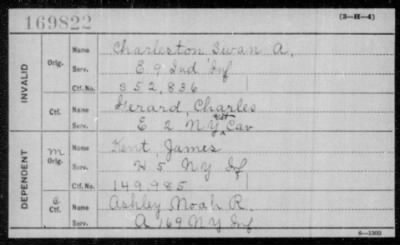 169822
[3-H-4]
INVALID
Orig.
Name Charleston Swan A.
Serv. E 9 Ind Inf
Ctf. No. 852,836
Ctf.
Name Gerard, Charles
Serv. E 2 NY Cav
DEPENDENT
m
Orig.
Name Kent, James
Serv. H 5 NY If
Ctf. No. 149.985
Ctf.
Name Ashley Noah R.
Serv. A 169 NY Inf